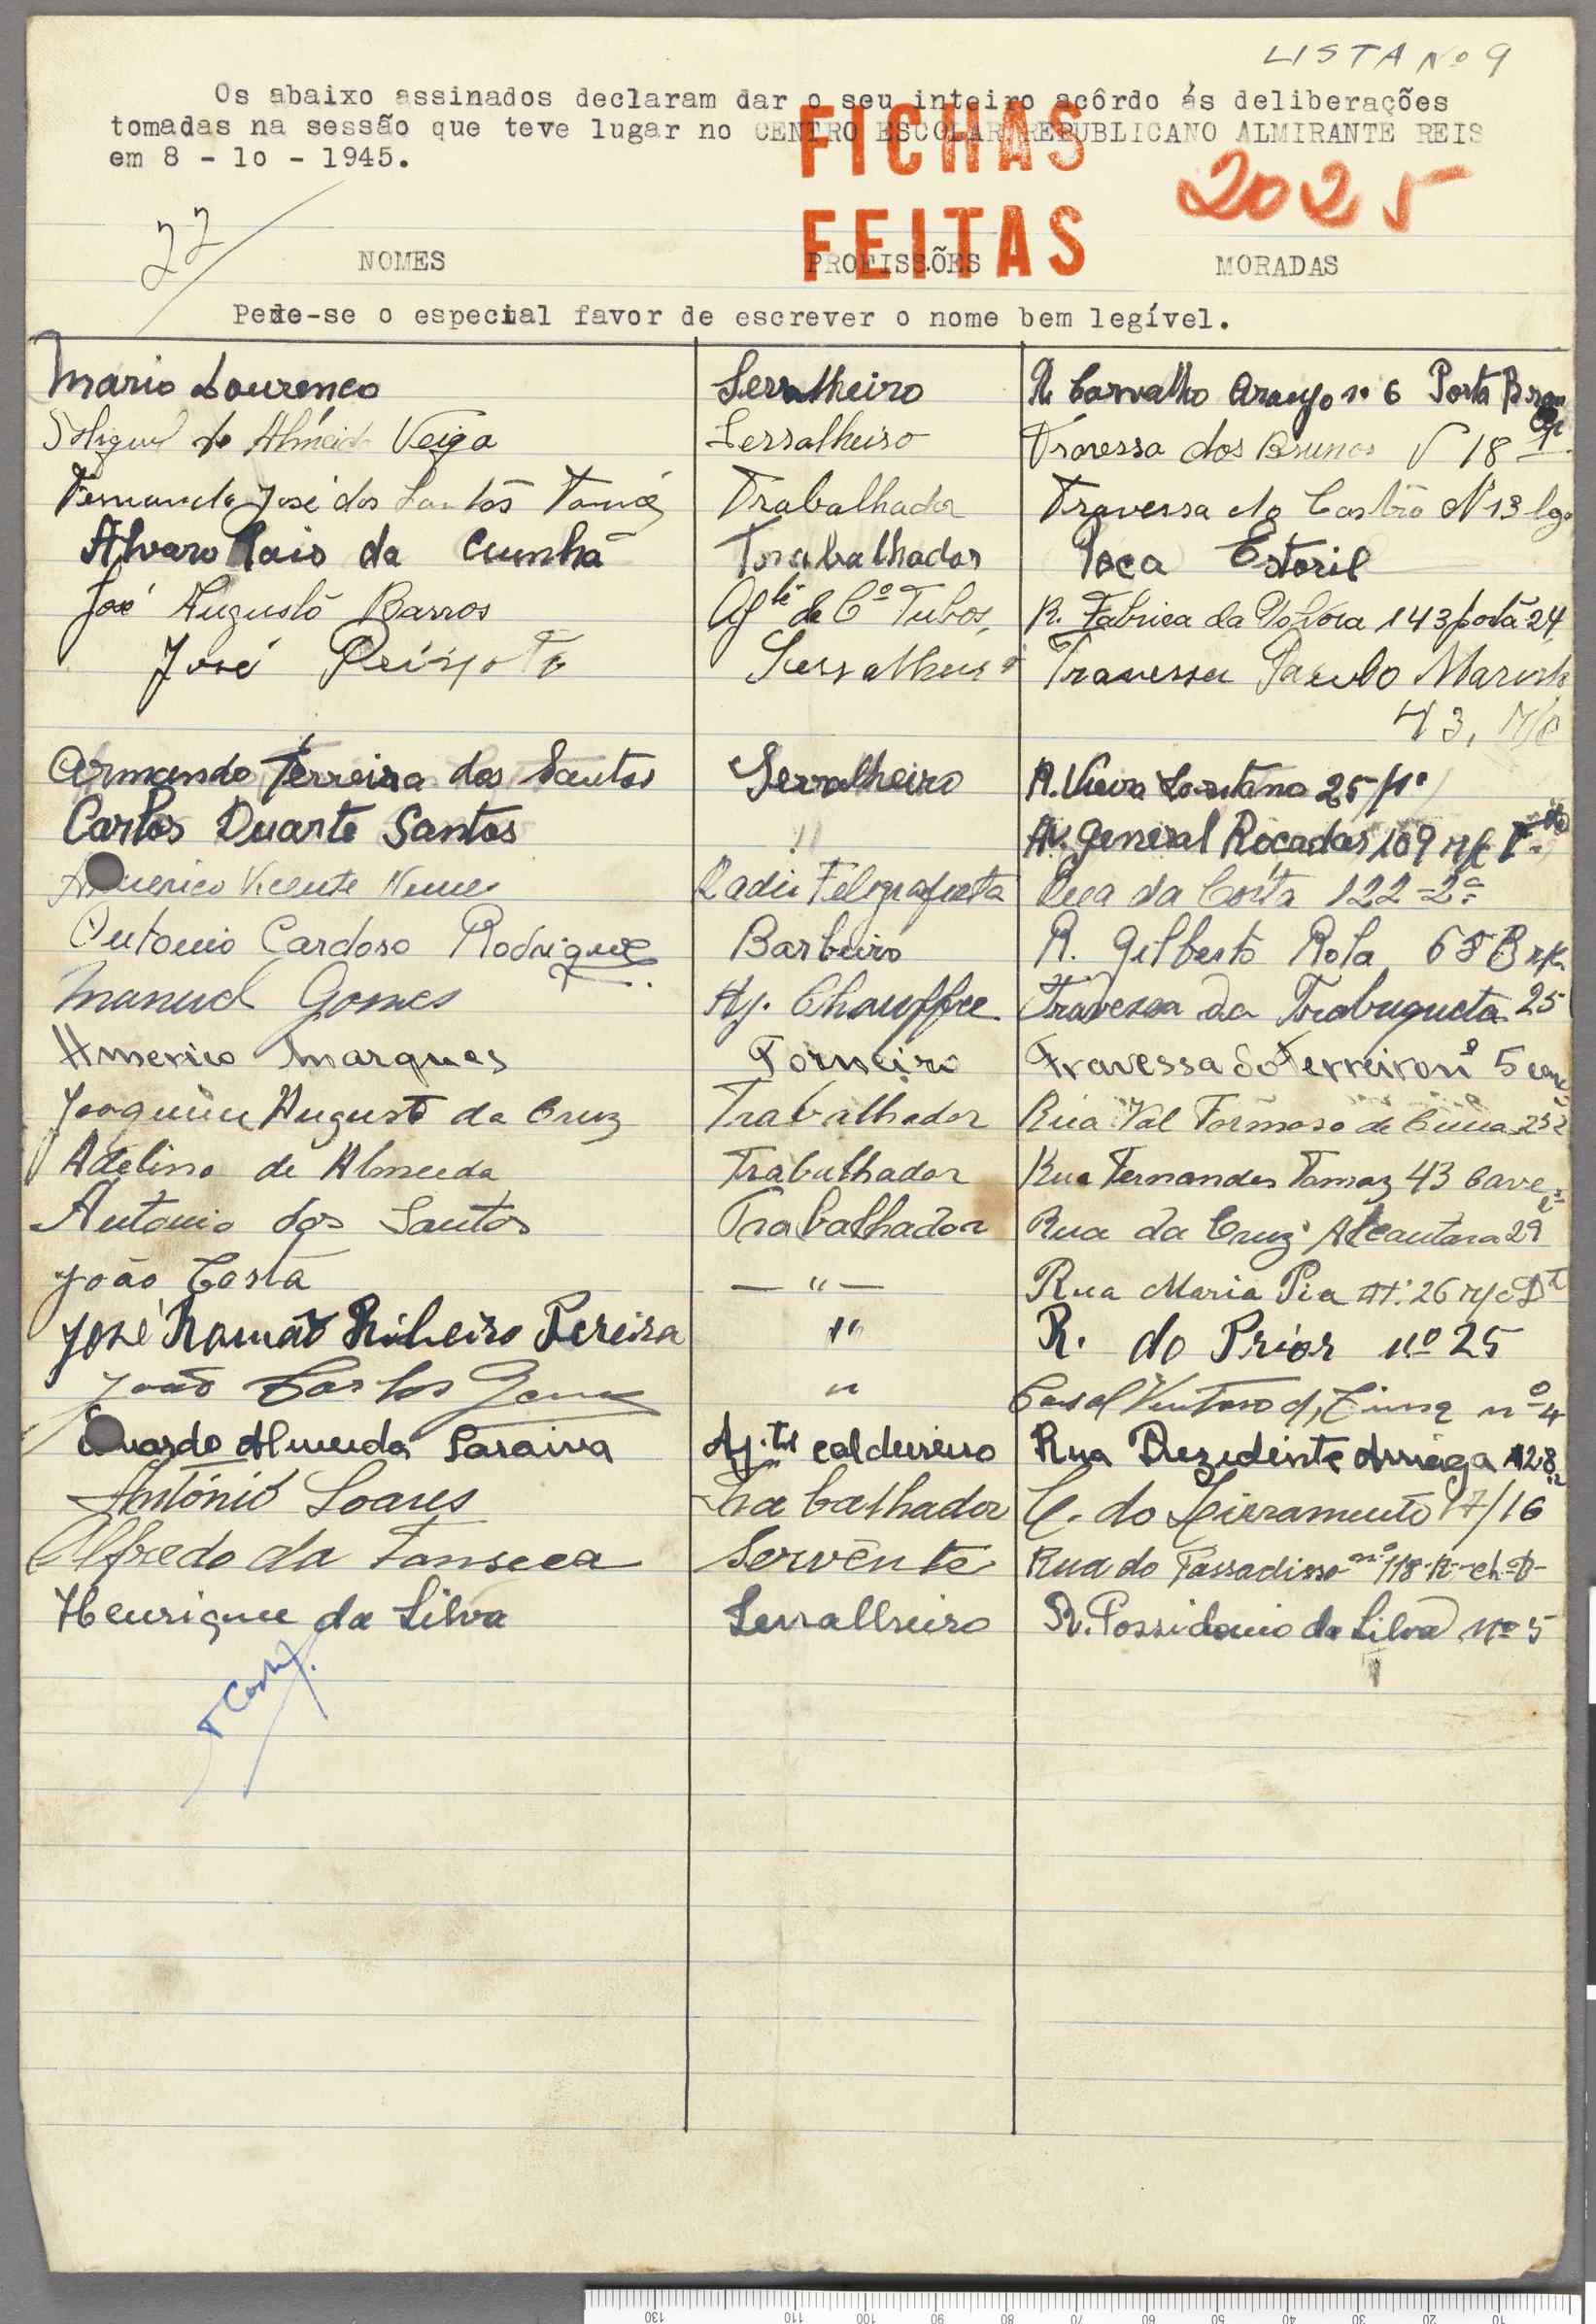 LISTA Nº 9
Os abaixo assinados declaram dar o seu inteiro acôrdo ás deliberações
tomadas na sessão que teve lugar no CENTRO ESCOLAR REPUBLICANO ALMIRANTE REIS
em 8 - 10 - 1945.
FICHAS
FEITAS
2025
22
NOMES PROFISSÕES MORADAS
Pede-se o especial favor de escrever o nome bem legível.
Mario Lourenco Serralheiro R. Carvalho Araujo nº 6 Porta B
Miguel de Almeida Veiga Serralheiro Travessa dos Brunos Nº 18
Fernando José dos Santos Tomé Trabalhador Travessa do Castro Nº 13
Alvaro Pais da Cunha Trabalhador Poca Estoril
José Augusto Barros Agte de Cº Tubos R. Fabrica da Polvora 143 porta 24
José Peixoto Serralheiro Travessa Paulo Martins
43, R/c
Armando Ferreira dos Santos Serralheiro R. Vieira Lusitano 25
Carlos Duarte Santos " Av. General Roçadas 109 r/c
Americo Vicente Nunes Radio Telegrafista Rua da Costa 122-2º
Antonio Cardoso Rodrigues Barbeiro R. Gilberto Rola 68 B r/c
Manuel Gomes Aj. Chauffre Travessa da Trabuqueta 25
Americo Marques Torneiro Travessa do Ferreiro nº 5 cave
Joaquim Augusto da Cruz Trabalhador Rua Val Formoso de Cima
Adelino de Almeida Trabalhador Rua Fernandes Tomaz 43 Cave
Antonio dos Santos Trabalhador Rua da Cruz Alcantara 29
João Costa — " — Rua Maria Pia Nº 26 r/c Dt
José Ramão Ribeiro Pereira " R. do Prior nº 25
João Carlos Gomes " Casal Ventoso d, Cima nº 4
Eduardo Almeida Saraiva Aj.te caldeireiro Rua Prezidente Arriaga 128
António Soares Trabalhador C. do Livramento 17/16
Alfredo da Fonseca Servente Rua do Passadisso nº 118-R-ch-D-
Henrique da Silva Serralheiro R. Possidonio da Silva Nº 5